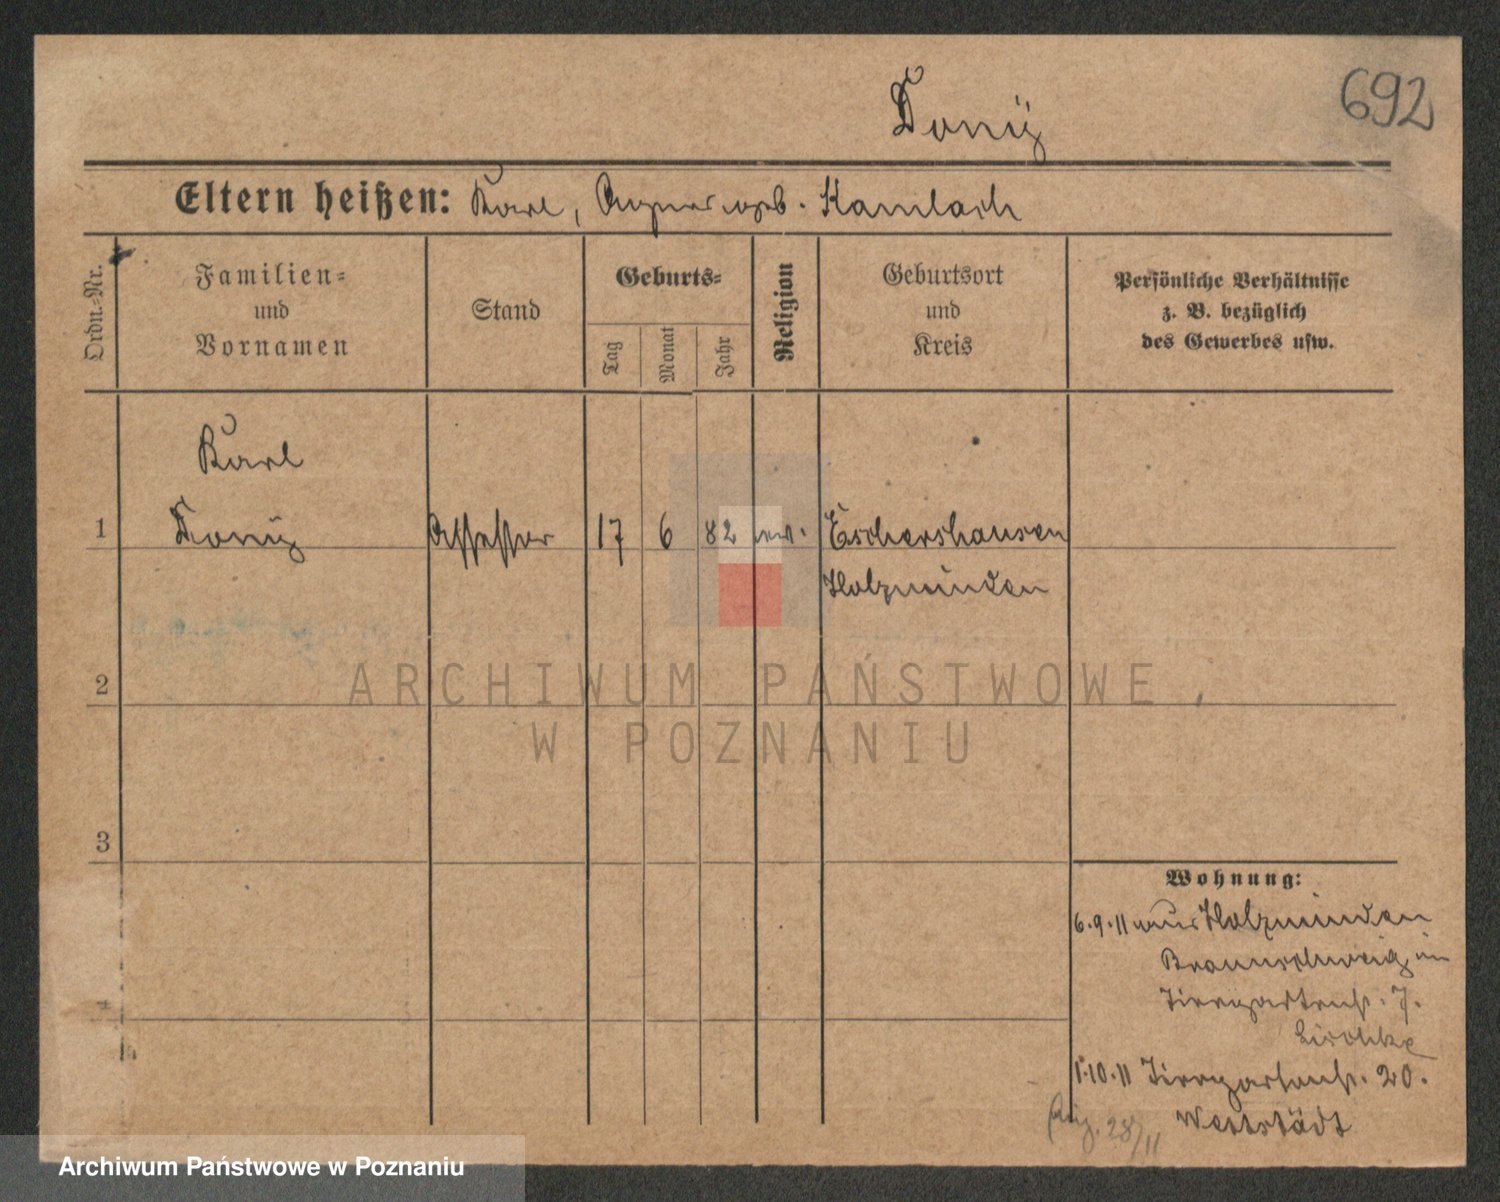 692
Eltern heißen: Karl, Agnes geb. Kamlach
Ordn.-Nr.
Familien-
und
Vornamen
Stand
Geburts-
Tag
Monat
Jahr
Religion
Geburtsort
und
Kreis
Persönliche Verhältnisse
z. B. bezüglich
des Gewerbes usw.
Karl
1
Assessor
17
6
82
ev.
Eschershausen
Holzminden
2
3
4
Wohnung:
6.9.11 aus Holzminden
Braunschweig in
Tiergartenstr. 7.
1.10.11 Tiergartenstr. 20.
28/11
ARCHIWUM PAŃSTWOWE
W POZNANIU
Archiwum Państwowe w Poznaniu